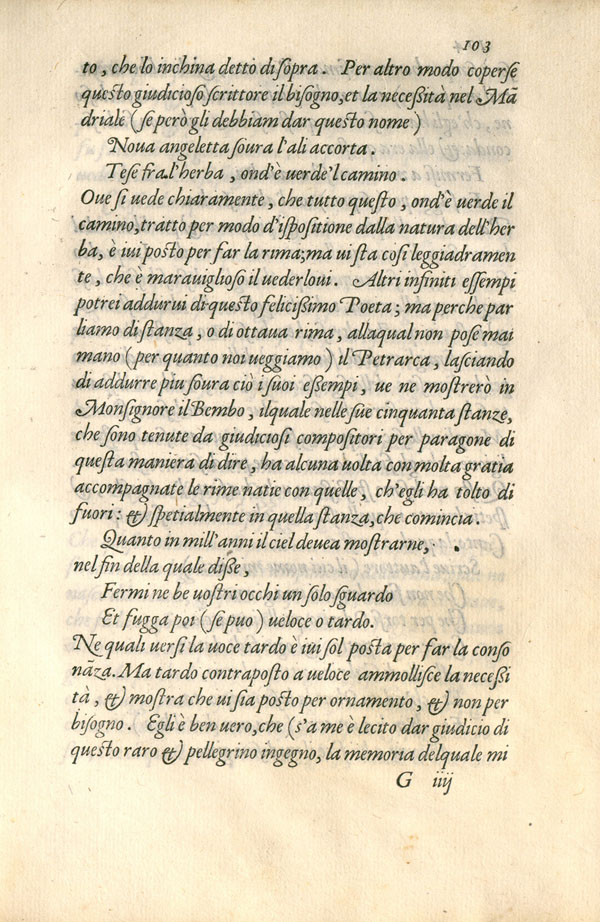 103
to, che lo inchina detto di ſopra. Per altro modo coperſe
queſto giudicioſo ſcrittore il biſogno, et la neceßità nel Mã
driale (ſe però gli debbiam dar queſto nome)
Noua angeletta ſoura l'ali accorta.
Teſe fra l'herba, ond'è uerde'l camino.
Oue ſi uede chiaramente, che tutto queſto, ond'è uerde il
camino, tratto per modo d'iſpoſitione dalla natura dell'her
ba, è iui poſto per far la rima; ma ui ſta coſi leggiadramen
te, che è marauiglioſo il uederloui. Altri infiniti eſſempi
potrei addurui di queſto felicißimo Poeta; ma perche par
liamo di ſtanza, o di ottaua rima, allaqual non poſe mai
mano (per quanto noi ueggiamo) il Petrarca, laſciando
di addurre piu ſoura ciò i ſuoi eßempi, ue ne moſtrerò in
Monſignore il Bembo, ilquale nelle ſue cinquanta ſtanze,
che ſono tenute da giudicioſi compoſitori per paragone di
queſta maniera di dire, ha alcuna uolta con molta gratia
accompagnate le rime natie con quelle, ch'egli ha tolto di
fuori: & ſpetialmente in quella ſtanza, che comincia.
Quanto in mill'anni il ciel deuea moſtrarne,
nel fin della quale diße,
Fermi ne be uoſtri occhi un ſolo ſguardo
Et fugga poi (ſe puo) ueloce o tardo.
Ne quali uerſi la uoce tardo è iui ſol poſta per far la conſo
nãza. Ma tardo contrapoſto a ueloce ammolliſce la neceßi
tà, & moſtra che ui ſia poſto per ornamento, & non per
biſogno. Egli è ben uero, che (s'a me è lecito dar giudicio di
queſto raro & pellegrino ingegno, la memoria delquale mi
G iiij